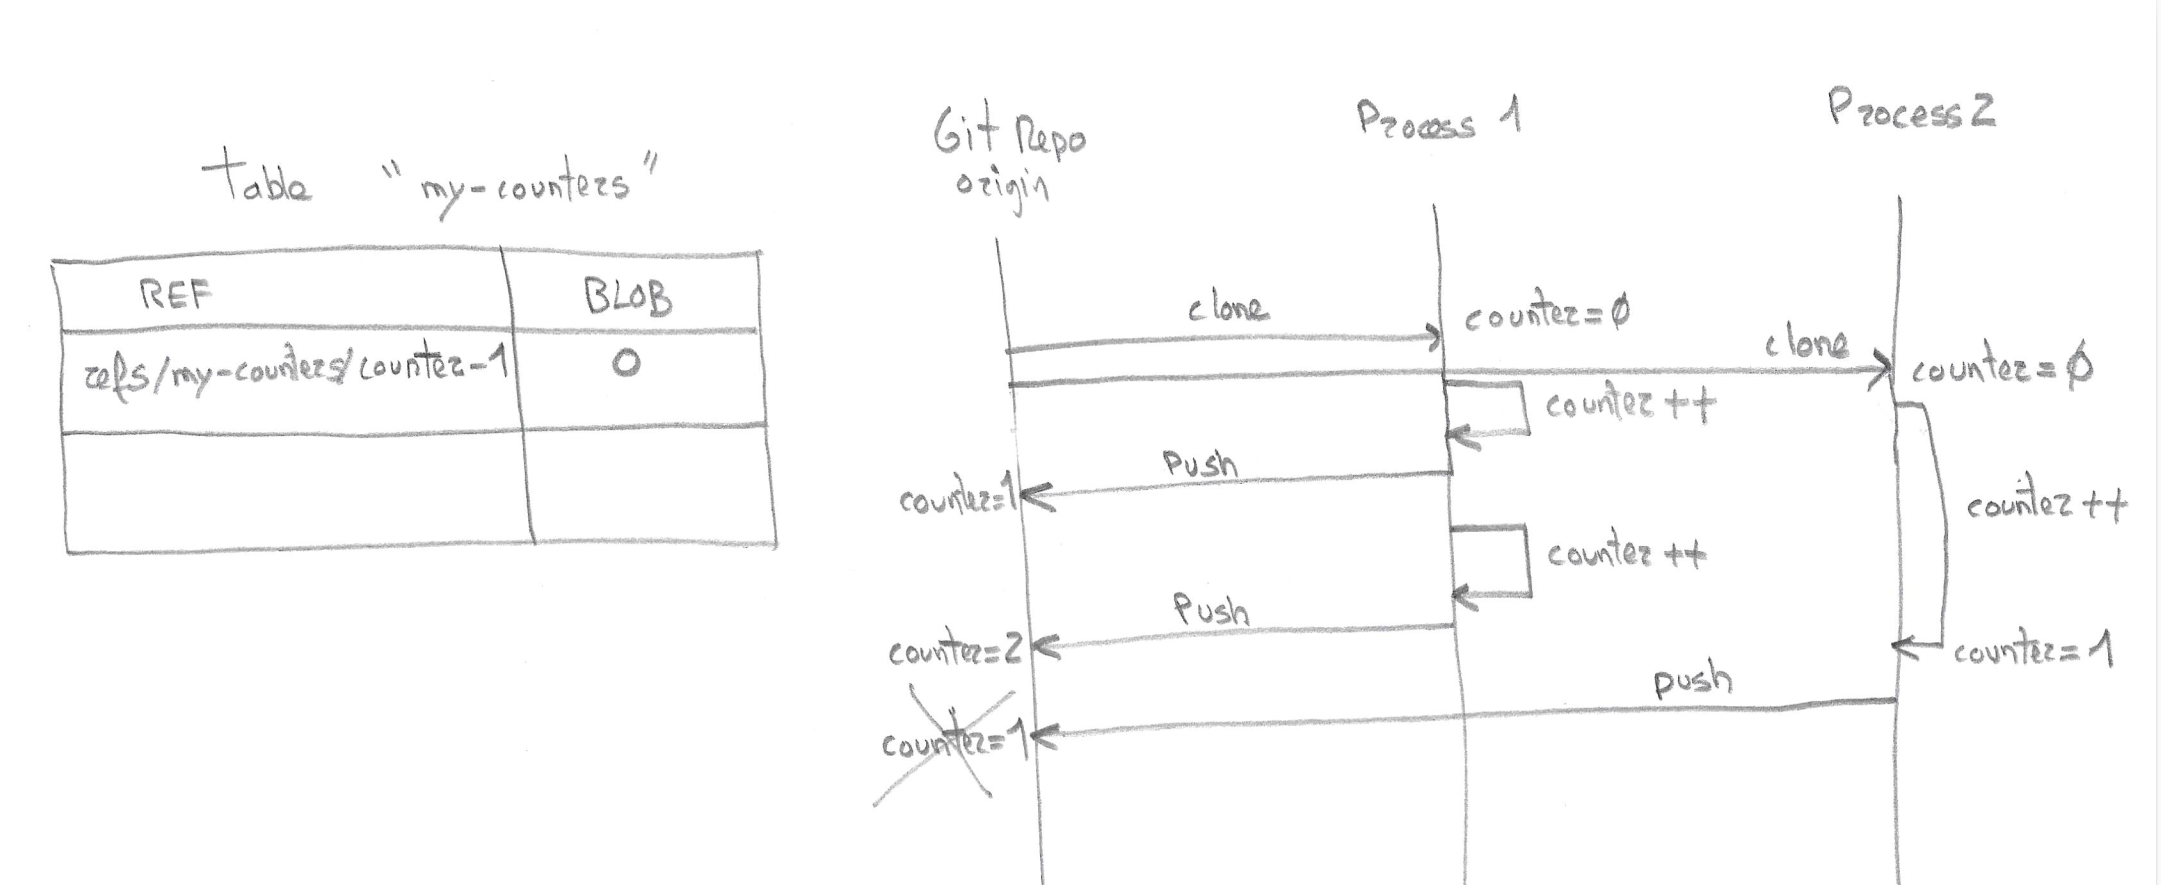 Table "my-counters"
REF BLOB
refs/my-counters/counter-1 0
Git Repo
origin
Process 1
Process 2
clone
counter=0
clone
counter=0
counter++
counter++
Push
counter=1
counter++
Push
counter=2
counter=1
push
counter=1